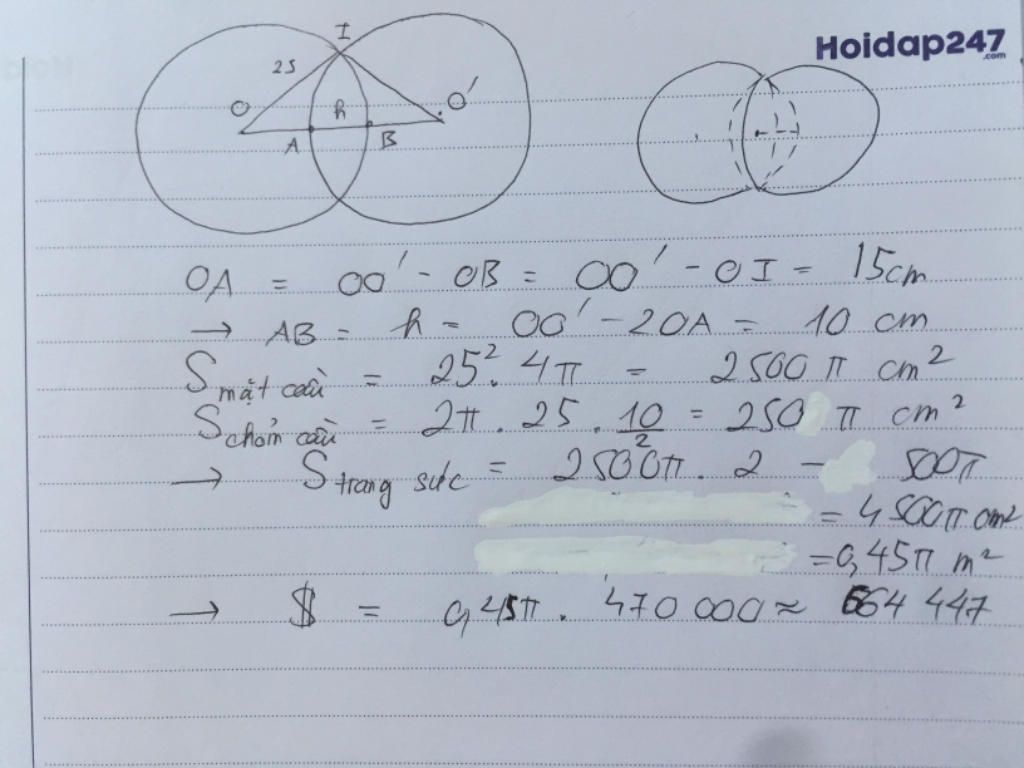 Hoidap247
.com
I
25
O
h
O'
A
B
OA = OO' - OB = OO' - OI = 15cm
→ AB = h = OO' - 2OA = 10 cm
S mặt cầu = 25². 4π = 2500 π cm²
S chỏm cầu = 2π . 25 . 10/2 = 250 π cm²
→ S trang sức = 2500π . 2 - 500π
= 4500π cm²
= 0,45π m²
→ $ = 0,45π . 470 000 ≈ 664 447